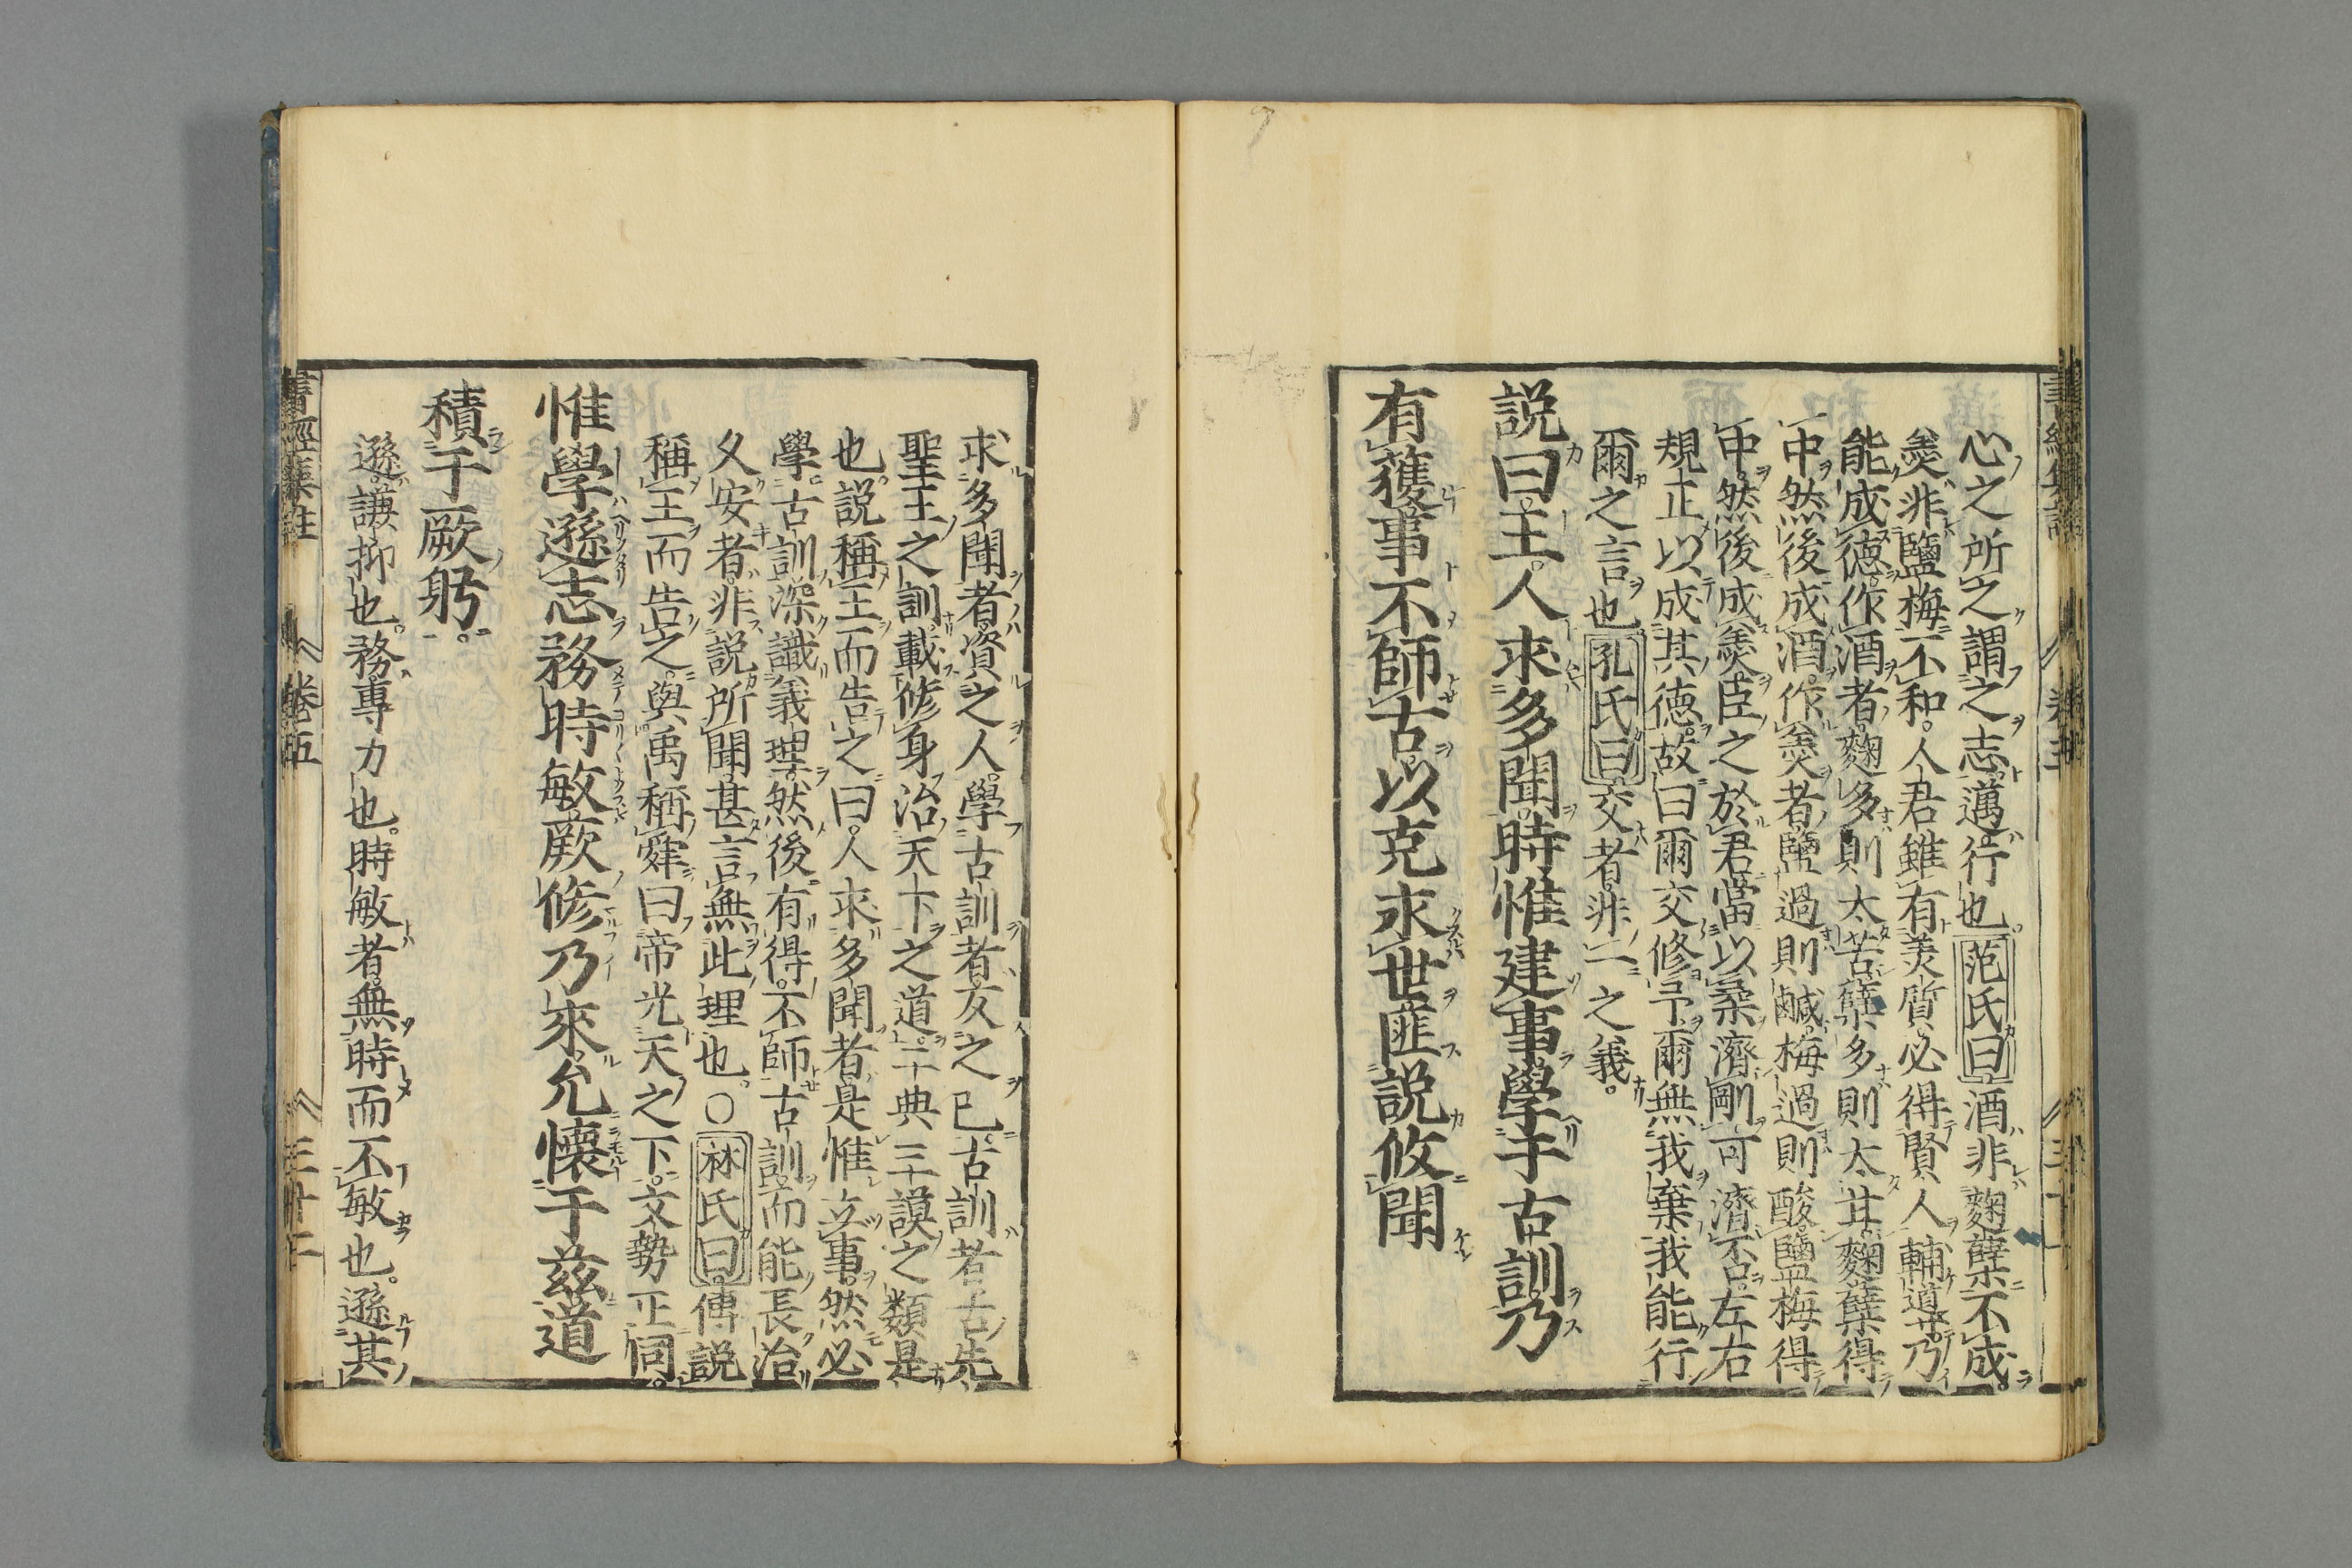 心之所之謂之志。邁行也。范氏曰酒非麴糵不成。
羮非鹽梅不和。人君雖有美質。必得賢人輔導。乃
能成德。作酒者。麴多則太苦。糵多則太甘。麴糵得
中。然後成酒。作羮者。鹽過則鹹。梅過則酸。鹽梅得
中。然後成羮。臣之於君。當以柔濟剛。可濟否。左右
規正以成其德。故曰爾交修予。爾無我棄。我能行
爾之言也。孔氏曰交者。非一之義。
説曰。王。人求多聞。時惟建事。學于古訓。乃
有獲。事不師古。以克永世。匪説攸聞
求多聞者。資之人。學古訓者。反之己。古訓者。古先
聖王之訓。載修身治天下之道。二典三謨之類是
也。説稱王而告之曰。人求多聞者。是惟立事。然必
學古訓。深識義理。然後有得。不師古訓。而能長治
久安者。非説所聞。甚言無此理也。○林氏曰。傳説
稱王而告之。與禹稱舜曰帝光天之下。文勢正同。
惟學遜志。務時敏。厥修乃來。允懷于茲。道
積于厥躬。
遜。謙抑也。務。專力也。時敏者。無時而不敏也。遜其
書經集註 卷五